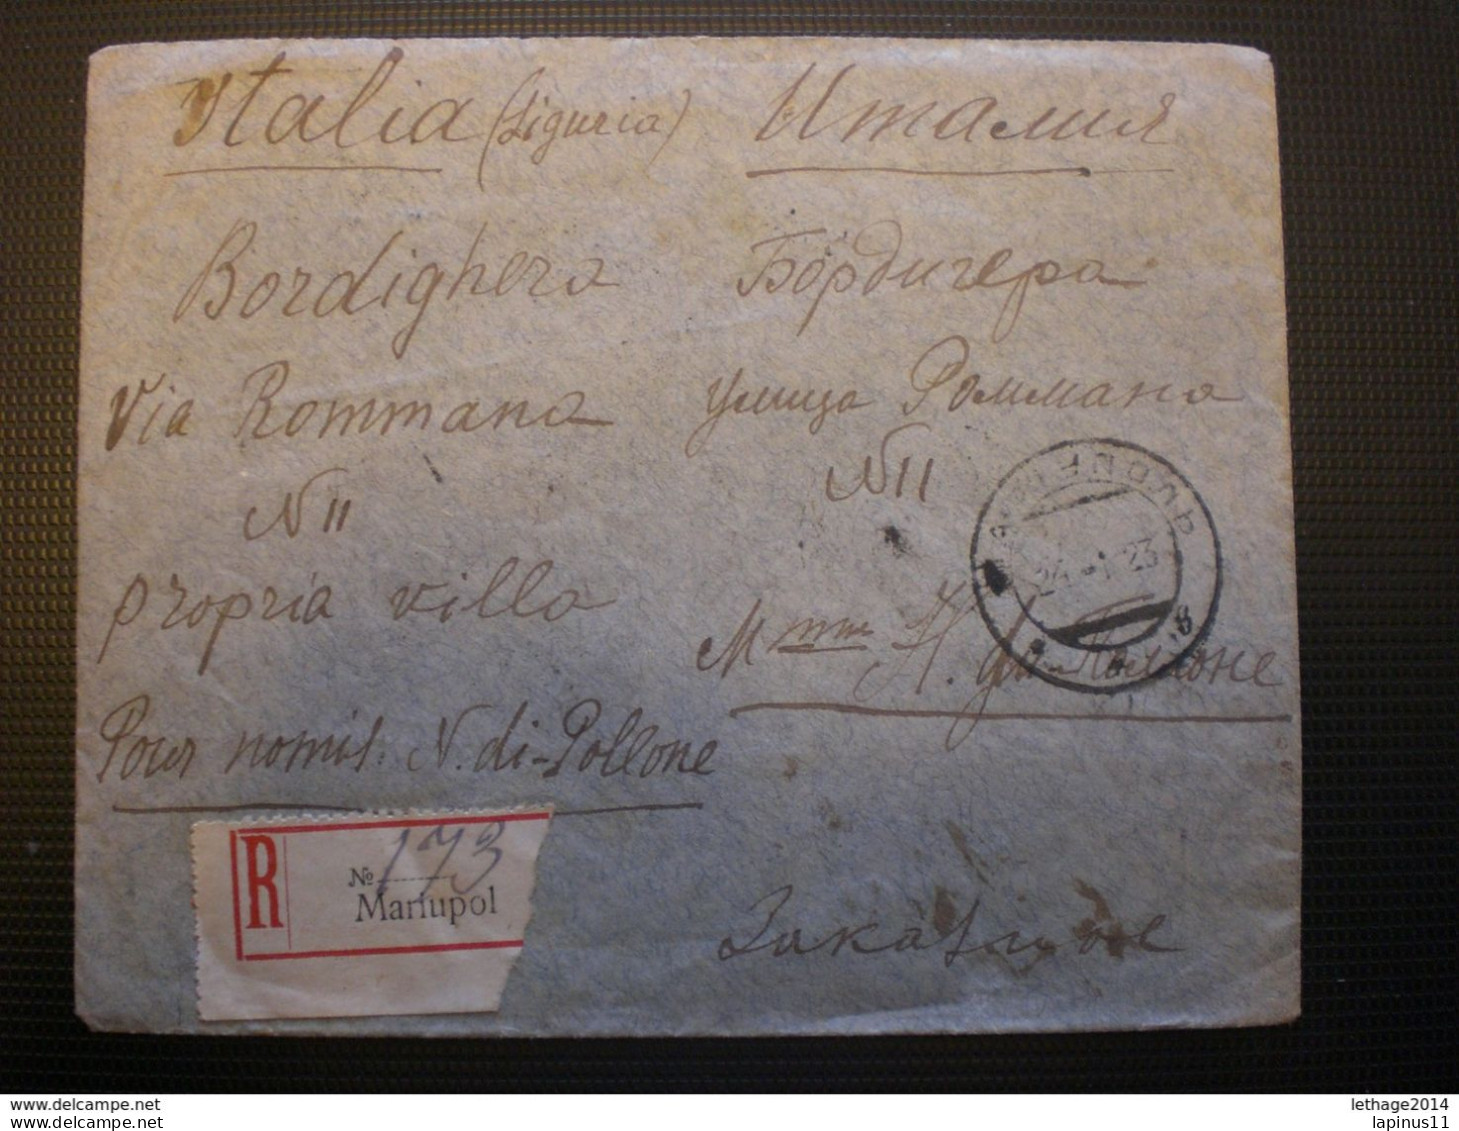 Italia (Liguria)
Италия
Bordighera
Бордигера
Via Rommana
улица Роммана
N 11
N 11
propria villa
24 -1 23
Mme Н. ди-Поллоне
Pour nomis. N. di-Pollone
R
№ 173
Mariupol
Заказное
delcampe.net
delcampe.net
lethage2014
lapinus11